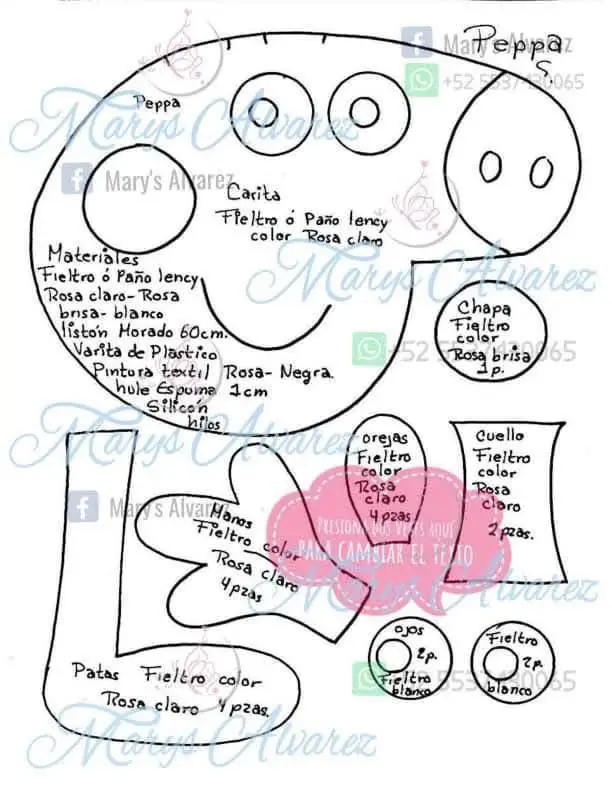 Peppa
S.
Mary's Alvarez
+52 5537430065
Peppa
Marys Alvarez
Mary's Alvarez
Carita
Fieltro ó Paño lency
color Rosa claro
Marys Alvarez
Materiales
Fieltro ó Paño lency
Rosa claro- Rosa
brisa- blanco
listón Morado 60cm.
Varita de Plastico
Pintura textil Rosa- Negra.
hule Espuma 1cm
Silicón
hilos
Chapa
Fieltro
color
Rosa brisa
1p.
+52 5537430065
Marys Alvarez
orejas
Fieltro
color
Rosa
claro
4 pzas
cuello
Fieltro
color
Rosa
claro
2 pzas.
Mary's Alvarez
Manos
Fieltro color
Rosa claro
4 pzas
Presiona dos veces aquí
para cambiar el texto
Marys Alvarez
ojos
2p.
Fieltro
blanco
Fieltro
2p.
blanco
5537430065
Patas Fieltro color
Rosa claro 4 pzas.
Marys Alvarez